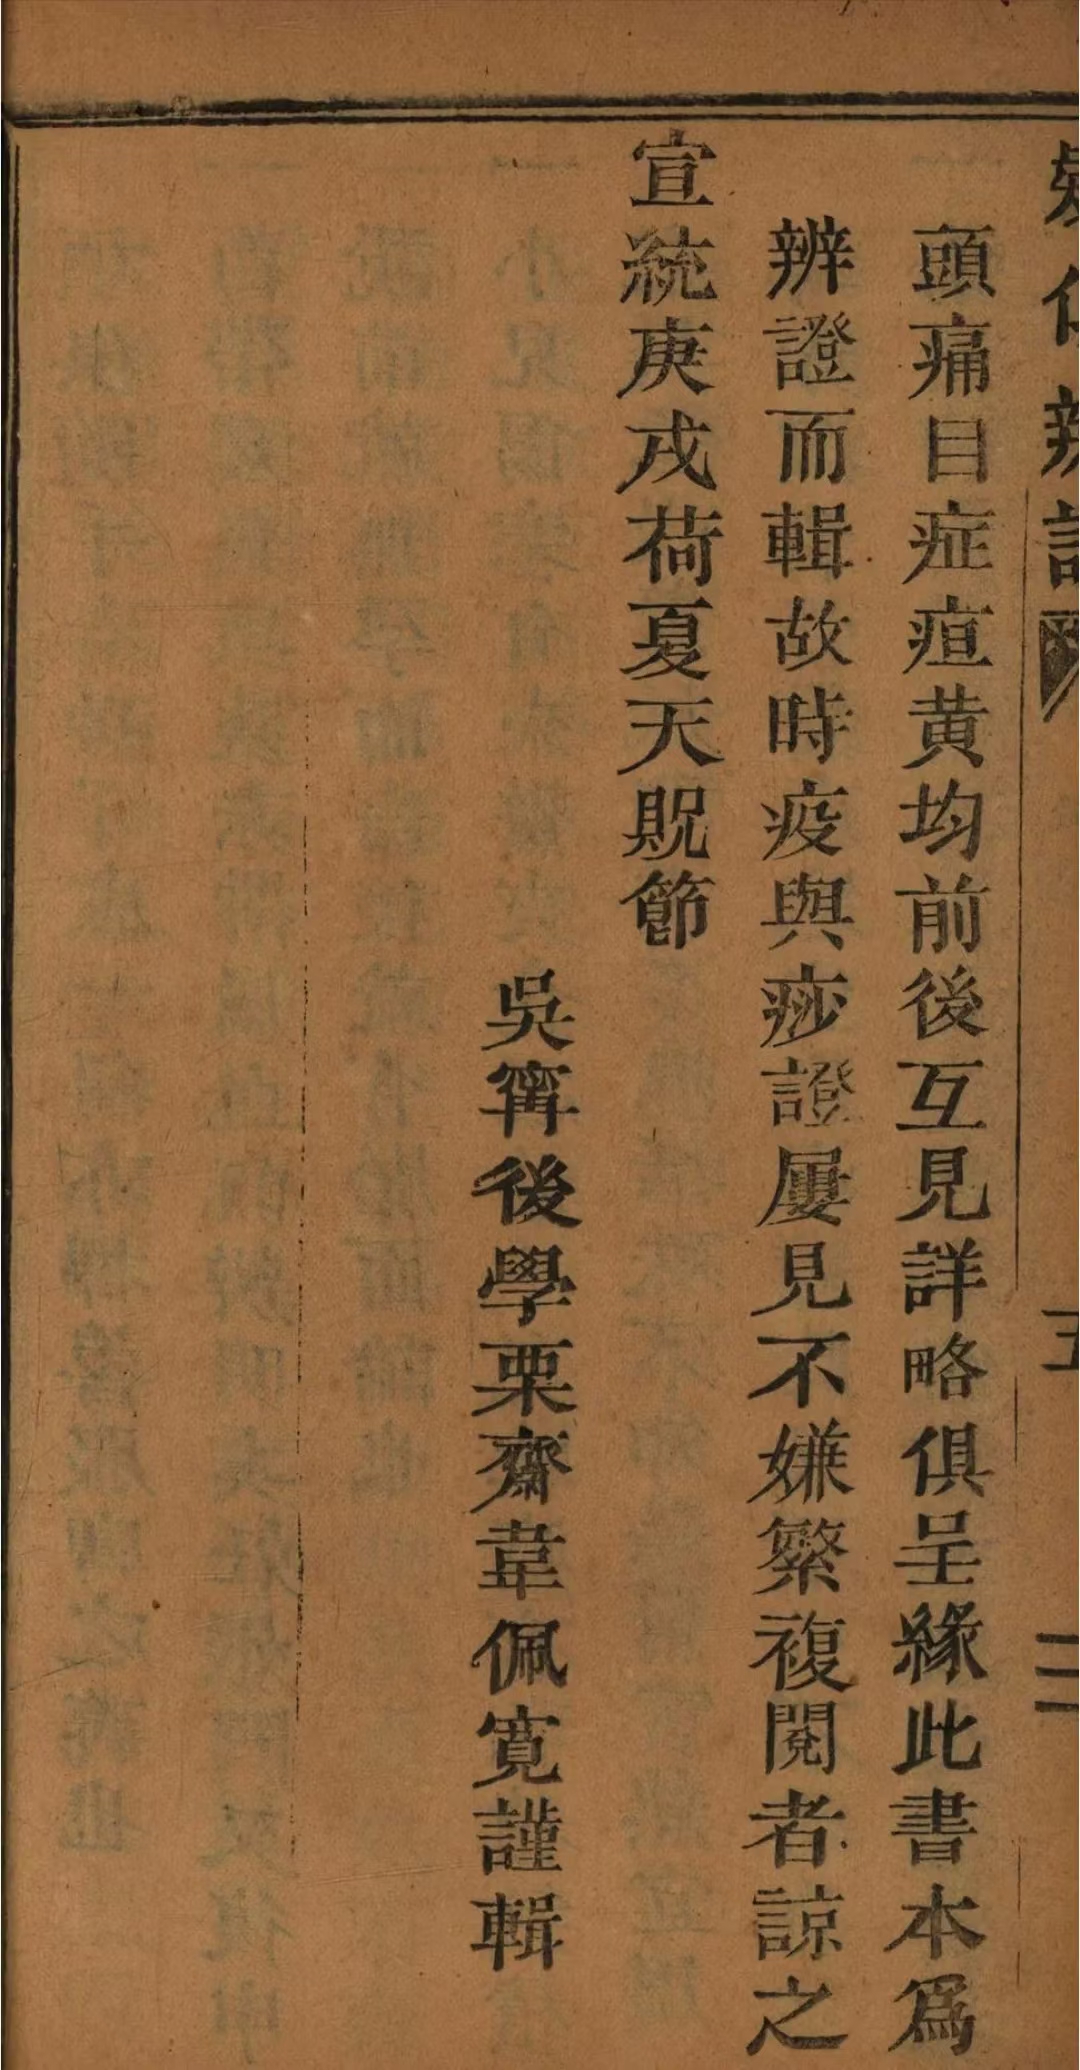 頭痛目症疸黄均前後互見詳略俱呈緣此書本爲
辨證而輯故時疫與痧證屢見不嫌繁複閱者諒之
宣統庚戌荷夏天貺節
吳甯後學栗齋韋佩寬謹輯